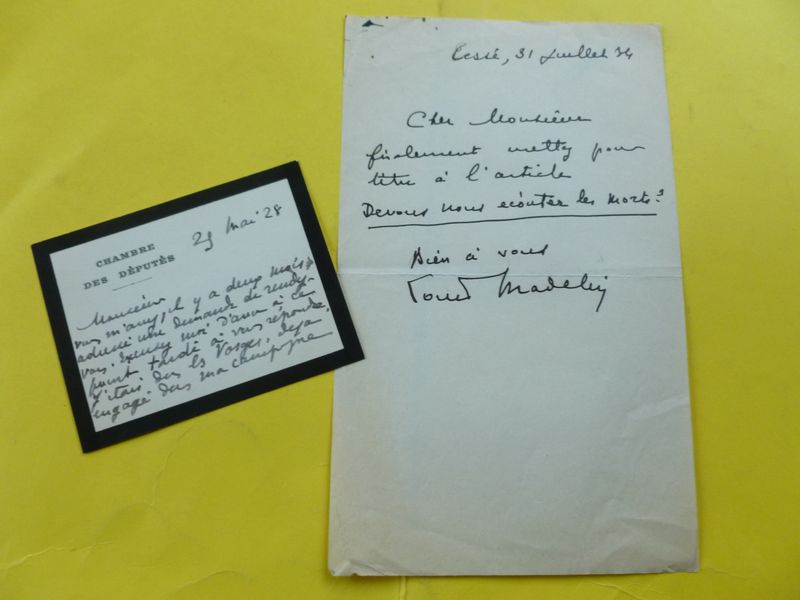 CHAMBRE
DES DÉPUTÉS
29 mai 28
Monsieur
vous m'avez, il y a deux mois,
adressé une demande de rendez-
vous. Excusez moi d'avoir à ce
point tardé à vous répondre.
J'étais dans les Vosges, déjà
engagé dans ma campagne
31 juillet 34
Cher Monsieur
finalement mettez pour
titre à l'article
Devons nous écouter les morts?
Bien à vous
Louis Madelin